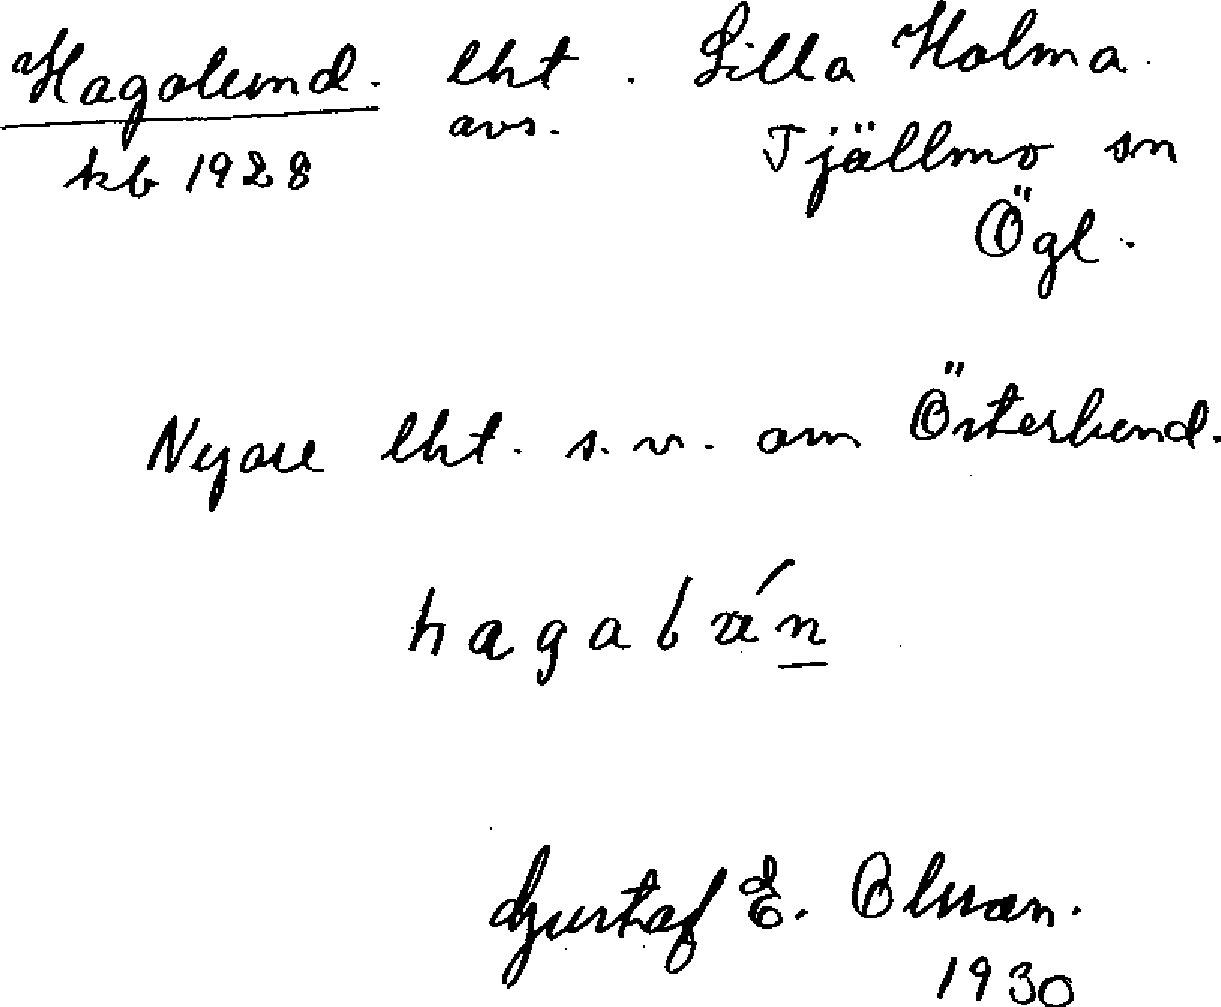 Hagalund. lht. Lilla Holma.
kb 1928 avs. Tjällmo sn
Ögl.
Nyare lht. s.v. om Österlund.
Gustaf E. Olsson.
1930